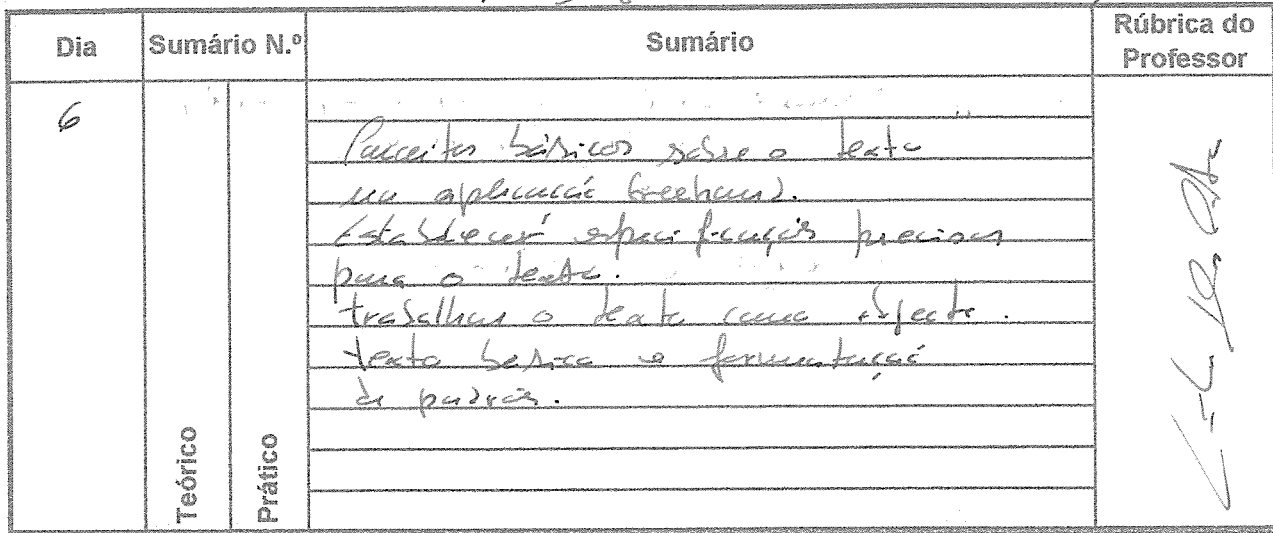 Dia Sumário N.º Sumário Rúbrica do Professor
6
básicos sobre o texto
na aplicação freehand.
Estabelecer especificações precisas
para o texto.
trabalhar o texto como objecto.
texto básico e formatação
de padrões.
Teórico
Prático